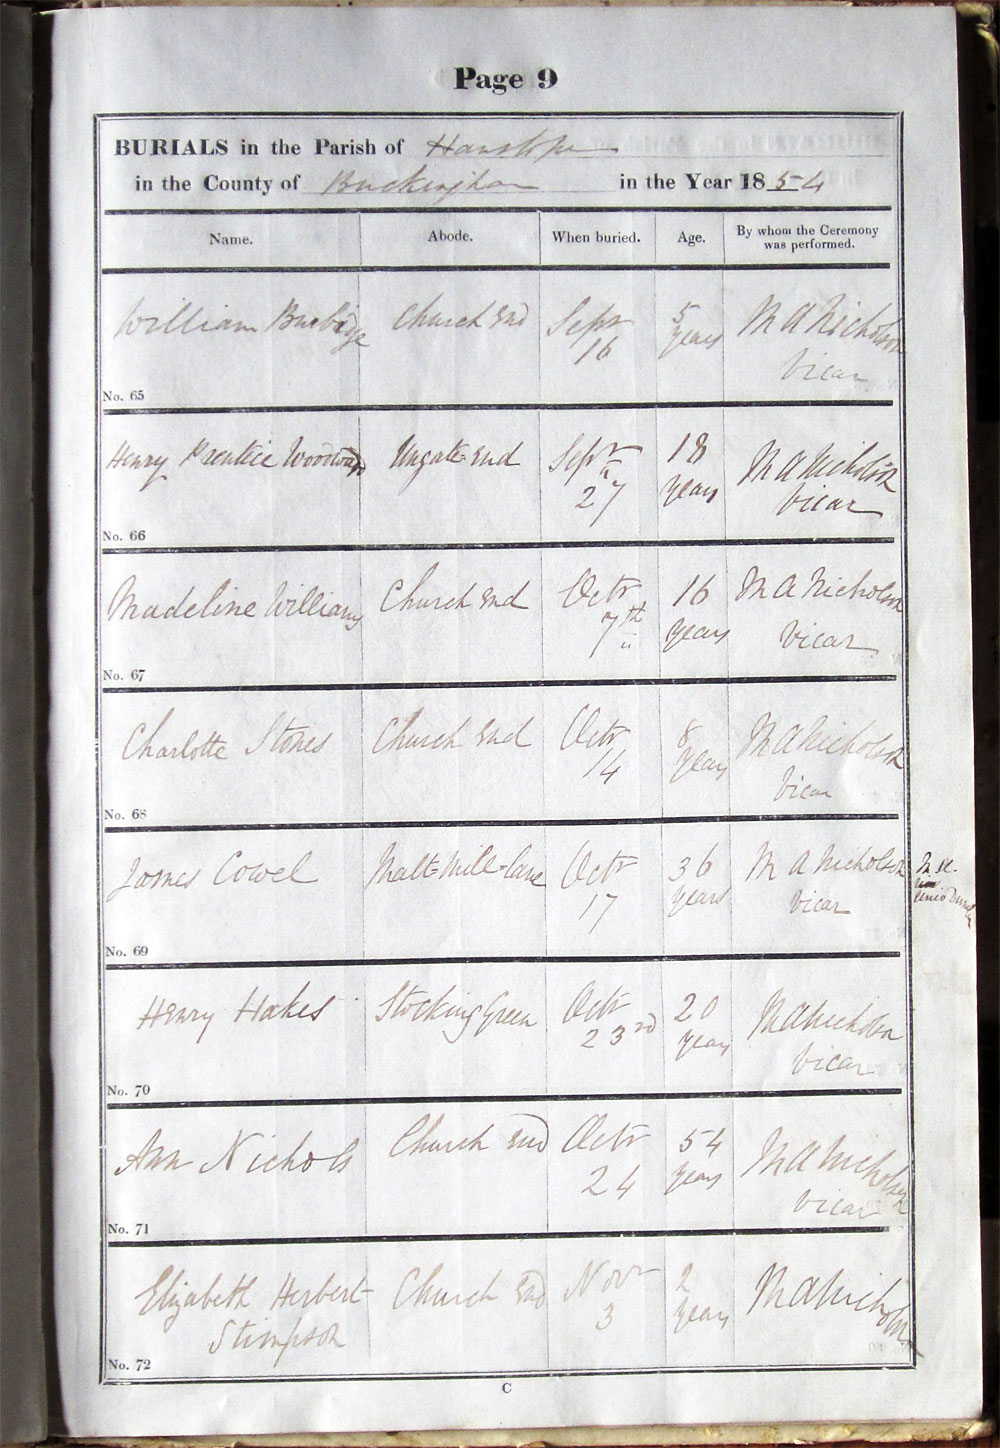 Page 9
BURIALS in the Parish of Hanslope
in the County of Buckingham in the Year 1854
Name. Abode. When buried. Age. By whom the Ceremony was performed.
William Burbidge Church End Septr 5 M A Nicholson
16 years Vicar
No. 65
Henry Prentice Woodward Ungate-End Septr 18 M A Nicholson
27 years Vicar
No. 66
Madeline Williams Church End Octr 16 M A Nicholson
7th years Vicar
No. 67
Charlotte Stones Church End Octr 8 M A Nicholson
14 years Vicar
No. 68
James Cowel Malt-Mill-Lane Octr 36 M A Nicholson
17 years Vicar
No. 69
Henry Hakes Stocking Green Octr 20 M A Nicholson
23rd years Vicar
No. 70
Ann Nichols Church End Octr 54 M A Nicholson
24 years Vicar
No. 71
Elizabeth Herbert Church End Novr 2 M A Nicholson
Stimpson 3 years
No. 72
C